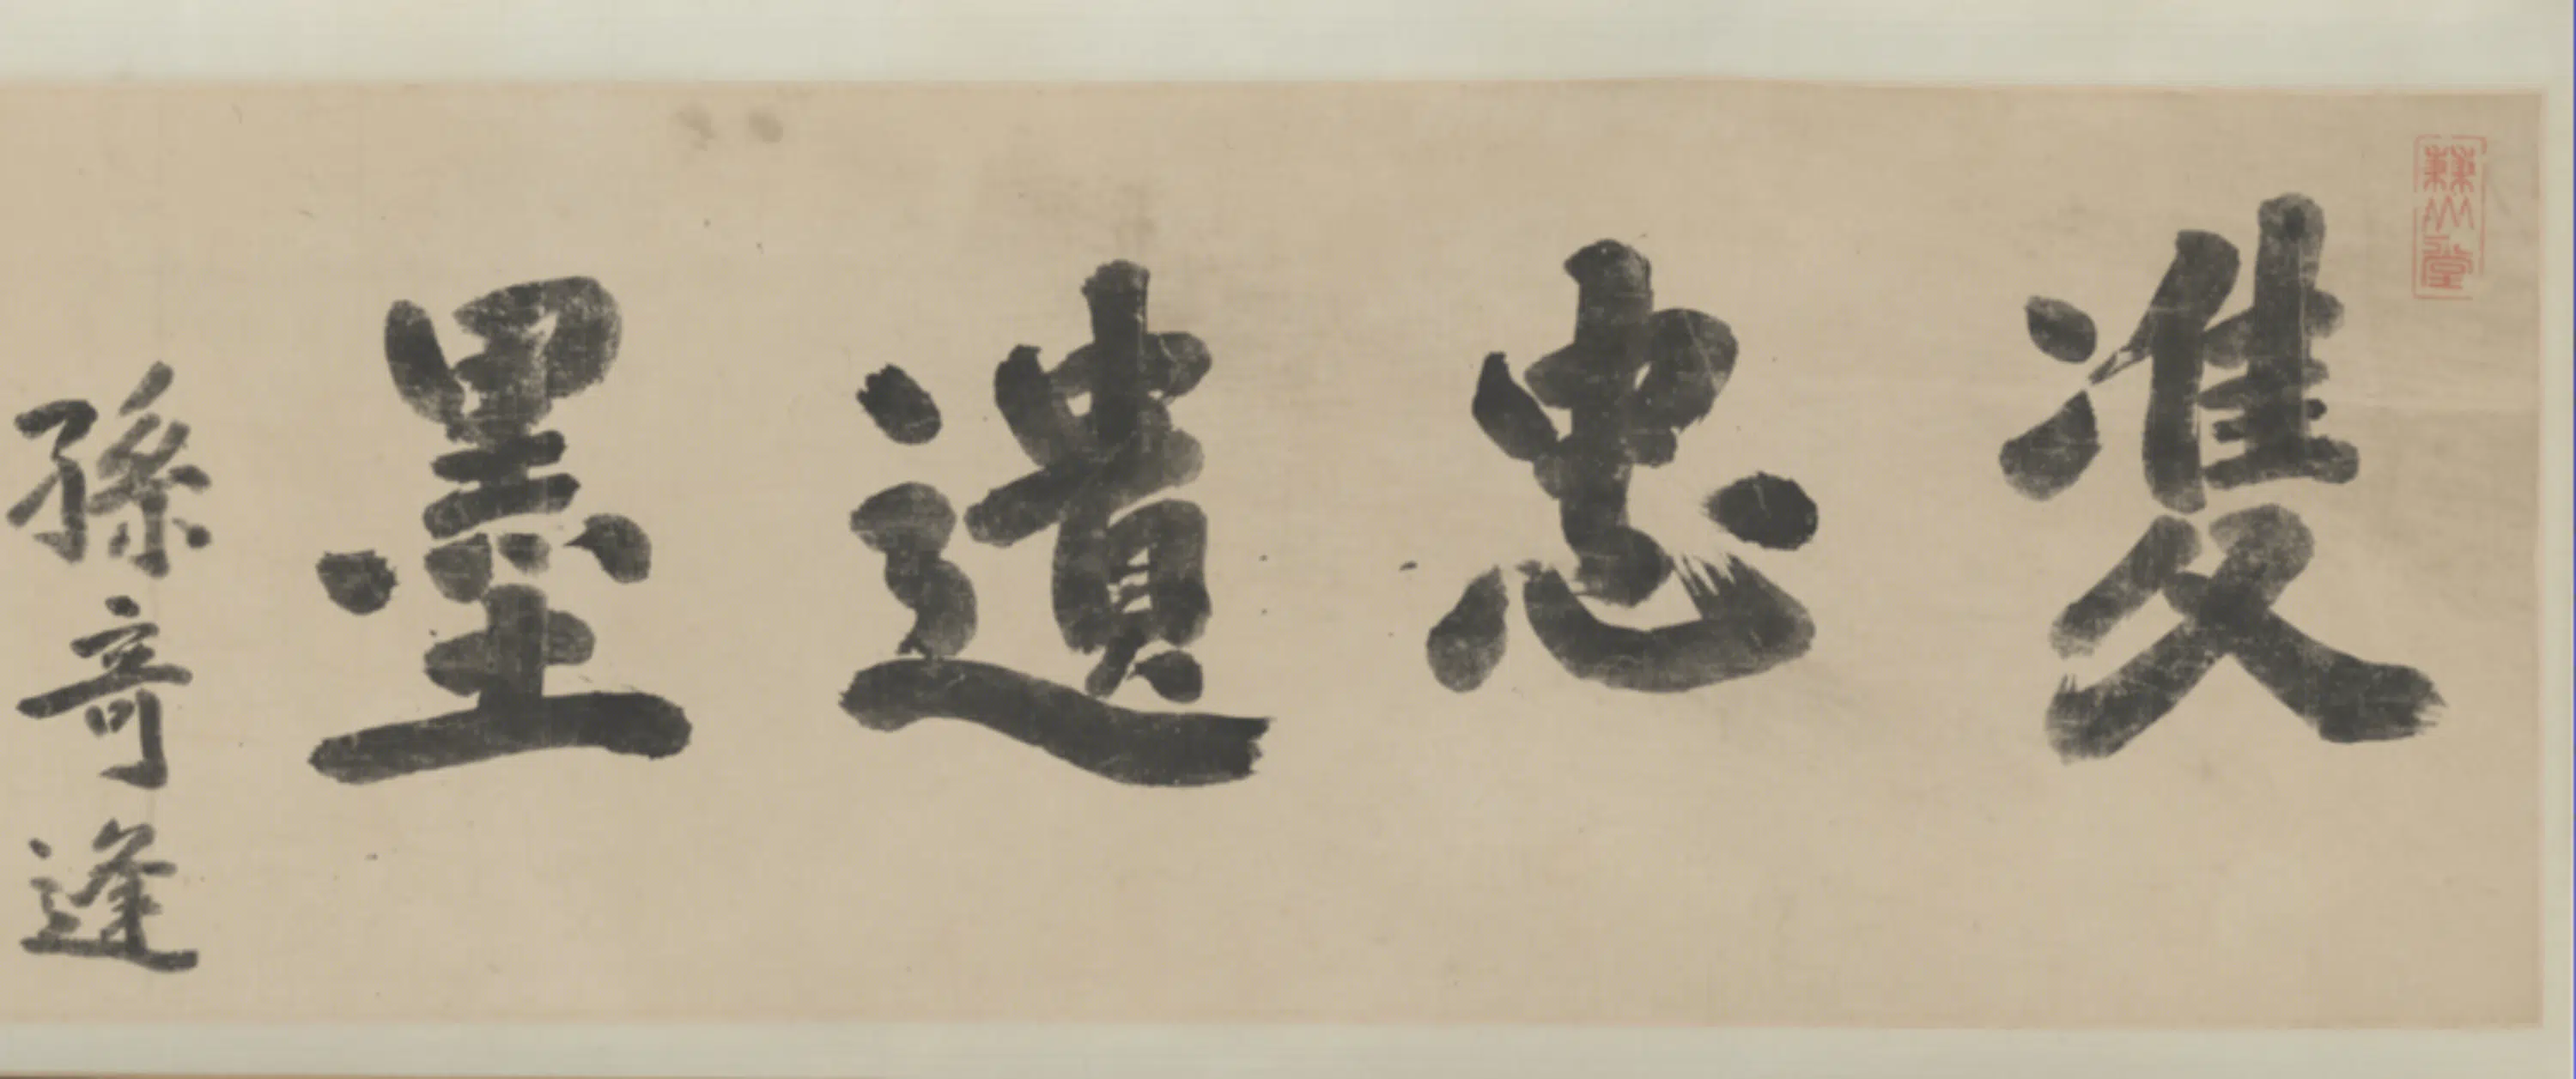 兼山堂
雙忠遺墨
孫奇逢